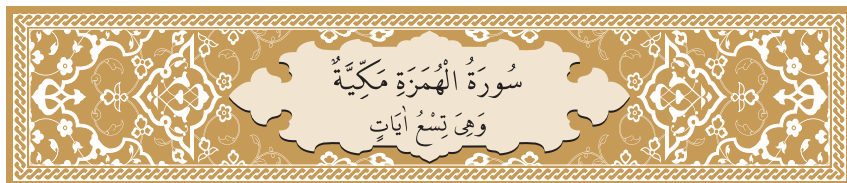 سُورَةُ الْهُمَزَةِ مَكِّيَّةٌ
وَهِىَ تِسْعُ اٰيَاتٍ